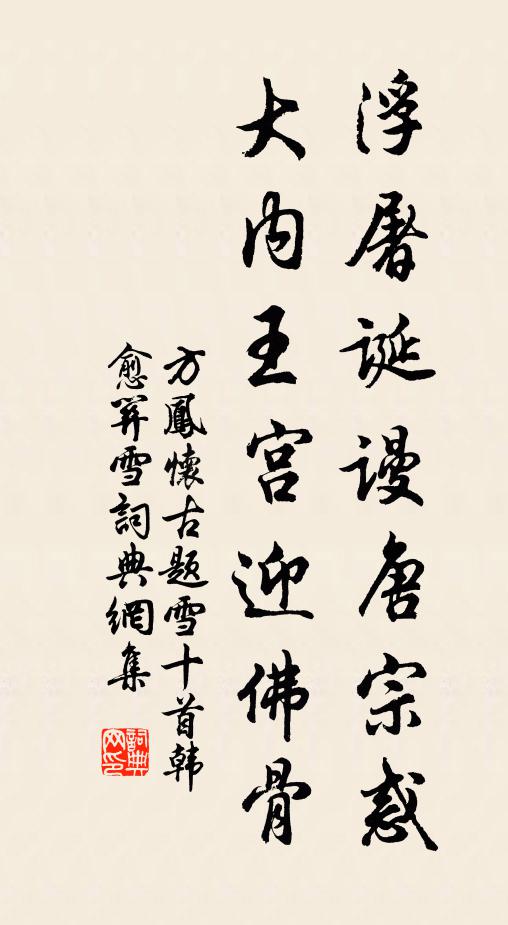 浮屠誕謾唐宗惑
大内王宫迎佛骨
方鳳懷古題雪十首韩
愈羿雪詞典網集
詞典
网印